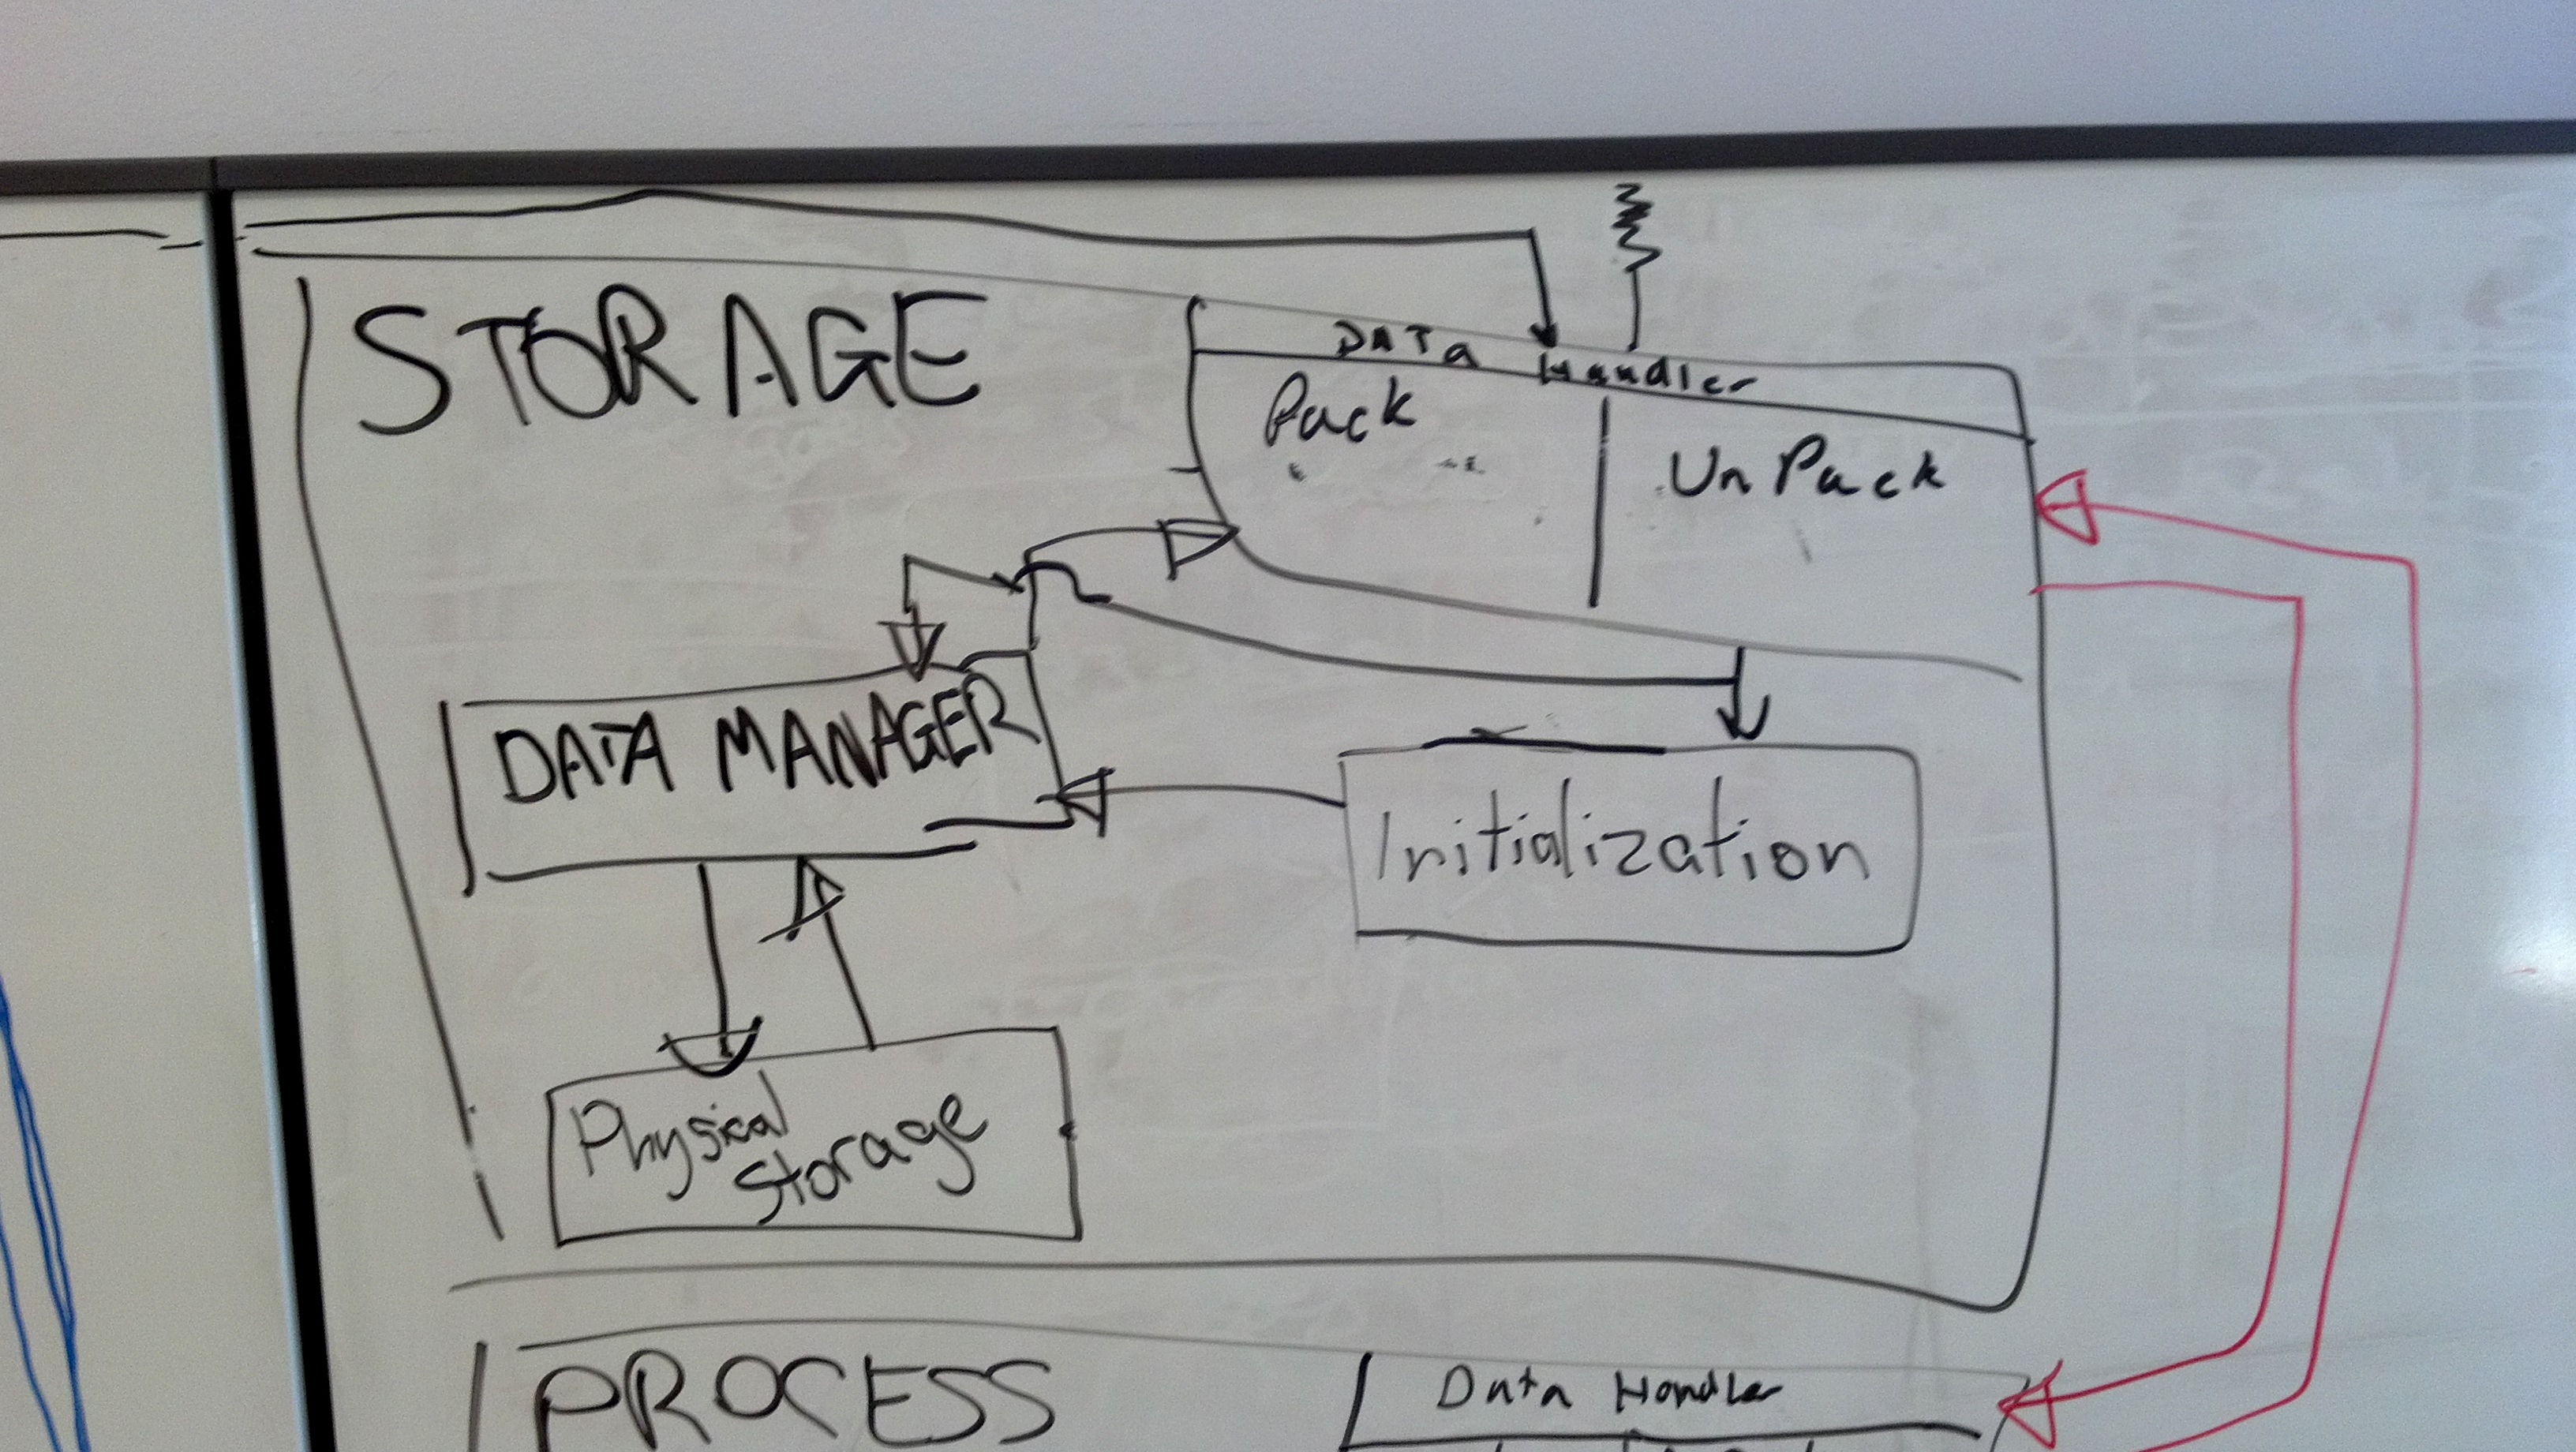 STORAGE
DATA Handler
Pack
UnPack
DATA MANAGER
Initialization
Physical
Storage
PROCESS
Data Handler